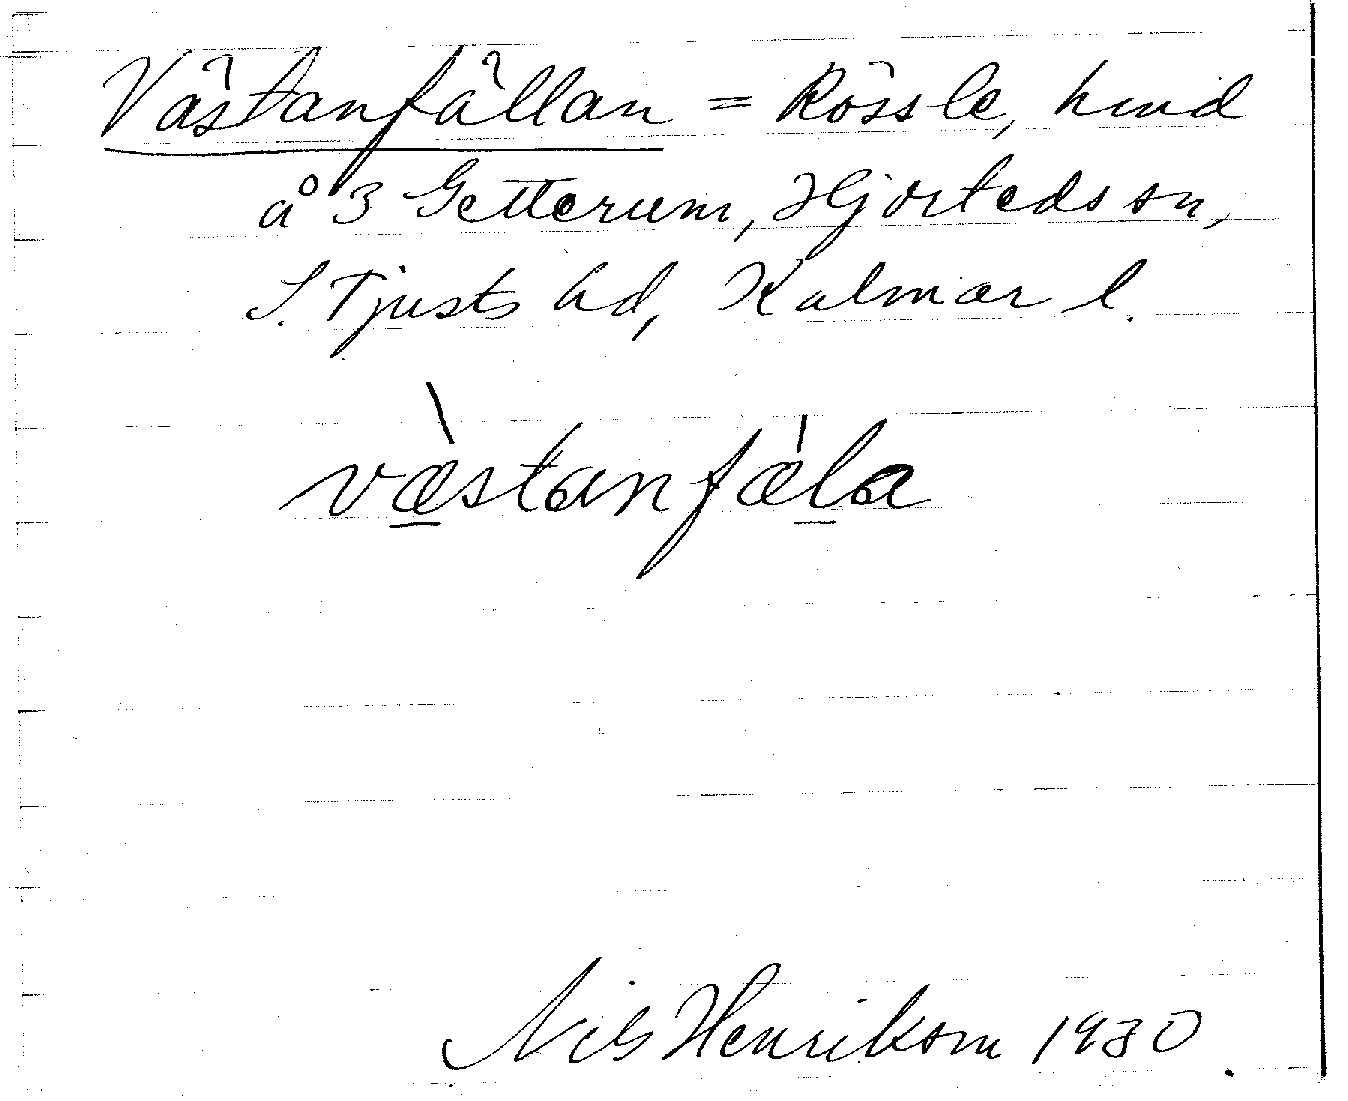 Västanfällan = Rössle, hmd
å 3 Getterum, Hjorteds sn,
S. Tjusts hd, Kalmar l.
væ̀stanfæ̀la
Nils Henrikson 1930